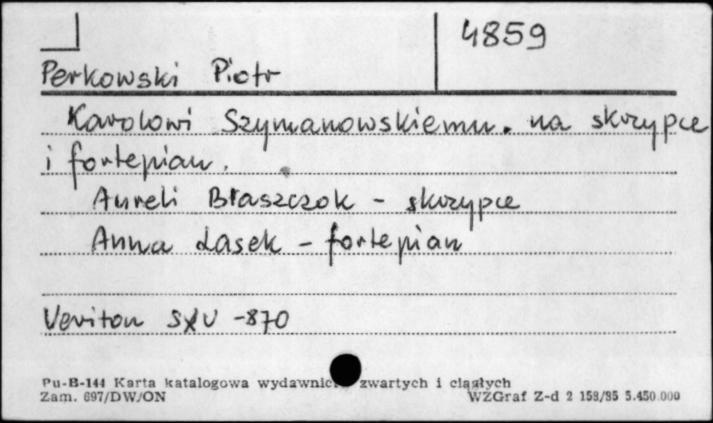 4859
Perkowski Piotr
Karolowi Szymanowskiemu. na skrzypce
i fortepian.
Aureli Błaszczok - skrzypce
Anna Lasek - fortepian
Veriton SXV -870
Pu-B-144 Karta katalogowa wydawnic zwartych i ciągłych
Zam. 697/DW/ON WZGraf Z-d 2 158/85 5.450.000